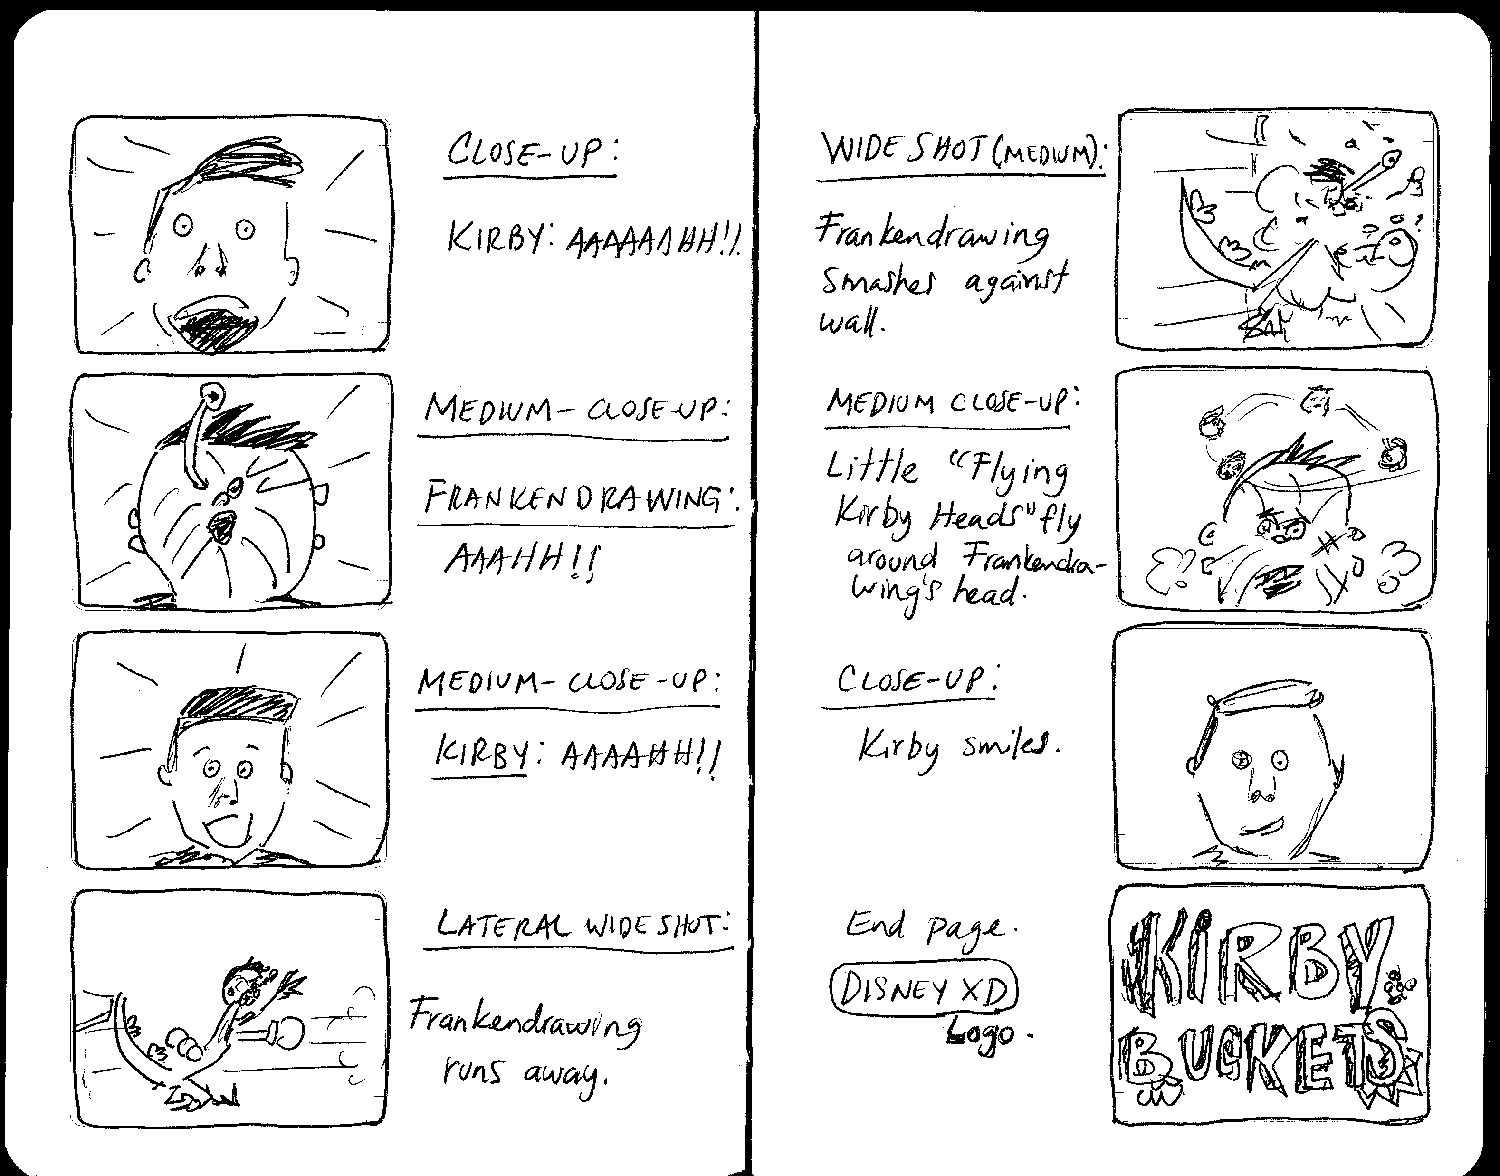 CLOSE-UP:
KIRBY: AAAAAAHH!!
MEDIUM-CLOSE-UP:
FRANKENDRAWING:
AAAHH!!
MEDIUM-CLOSE-UP:
KIRBY: AAAAHH!!
LATERAL WIDE SHOT:
Frankendrawing
runs away.
WIDE SHOT (MEDIUM):
Frankendrawing
smashes against
wall.
MEDIUM CLOSE-UP:
Little "Flying
Kirby Heads" fly
around Frankendra-
wing's head.
CLOSE-UP:
Kirby smiles.
End page.
DISNEY XD
Logo.
KIRBY
BUCKETS